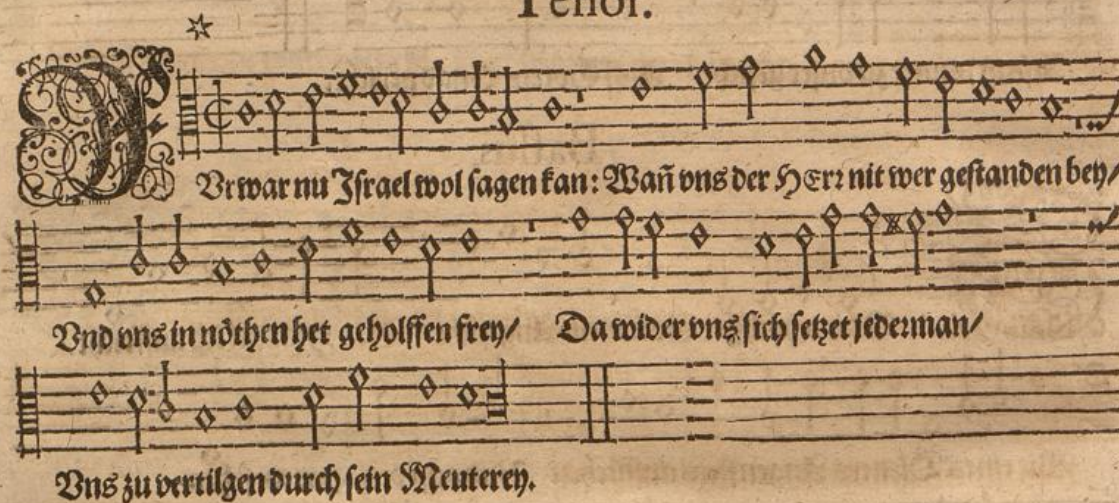 Tenor.
FUrwar nu Israel wol sagen kan: Wañ vns der HErr nit wer gestanden bey/
Vnd vns in nöthen het geholffen frey/ Da wider vns sich setzet jederman/
Vns zu vertilgen durch sein Meuterey.